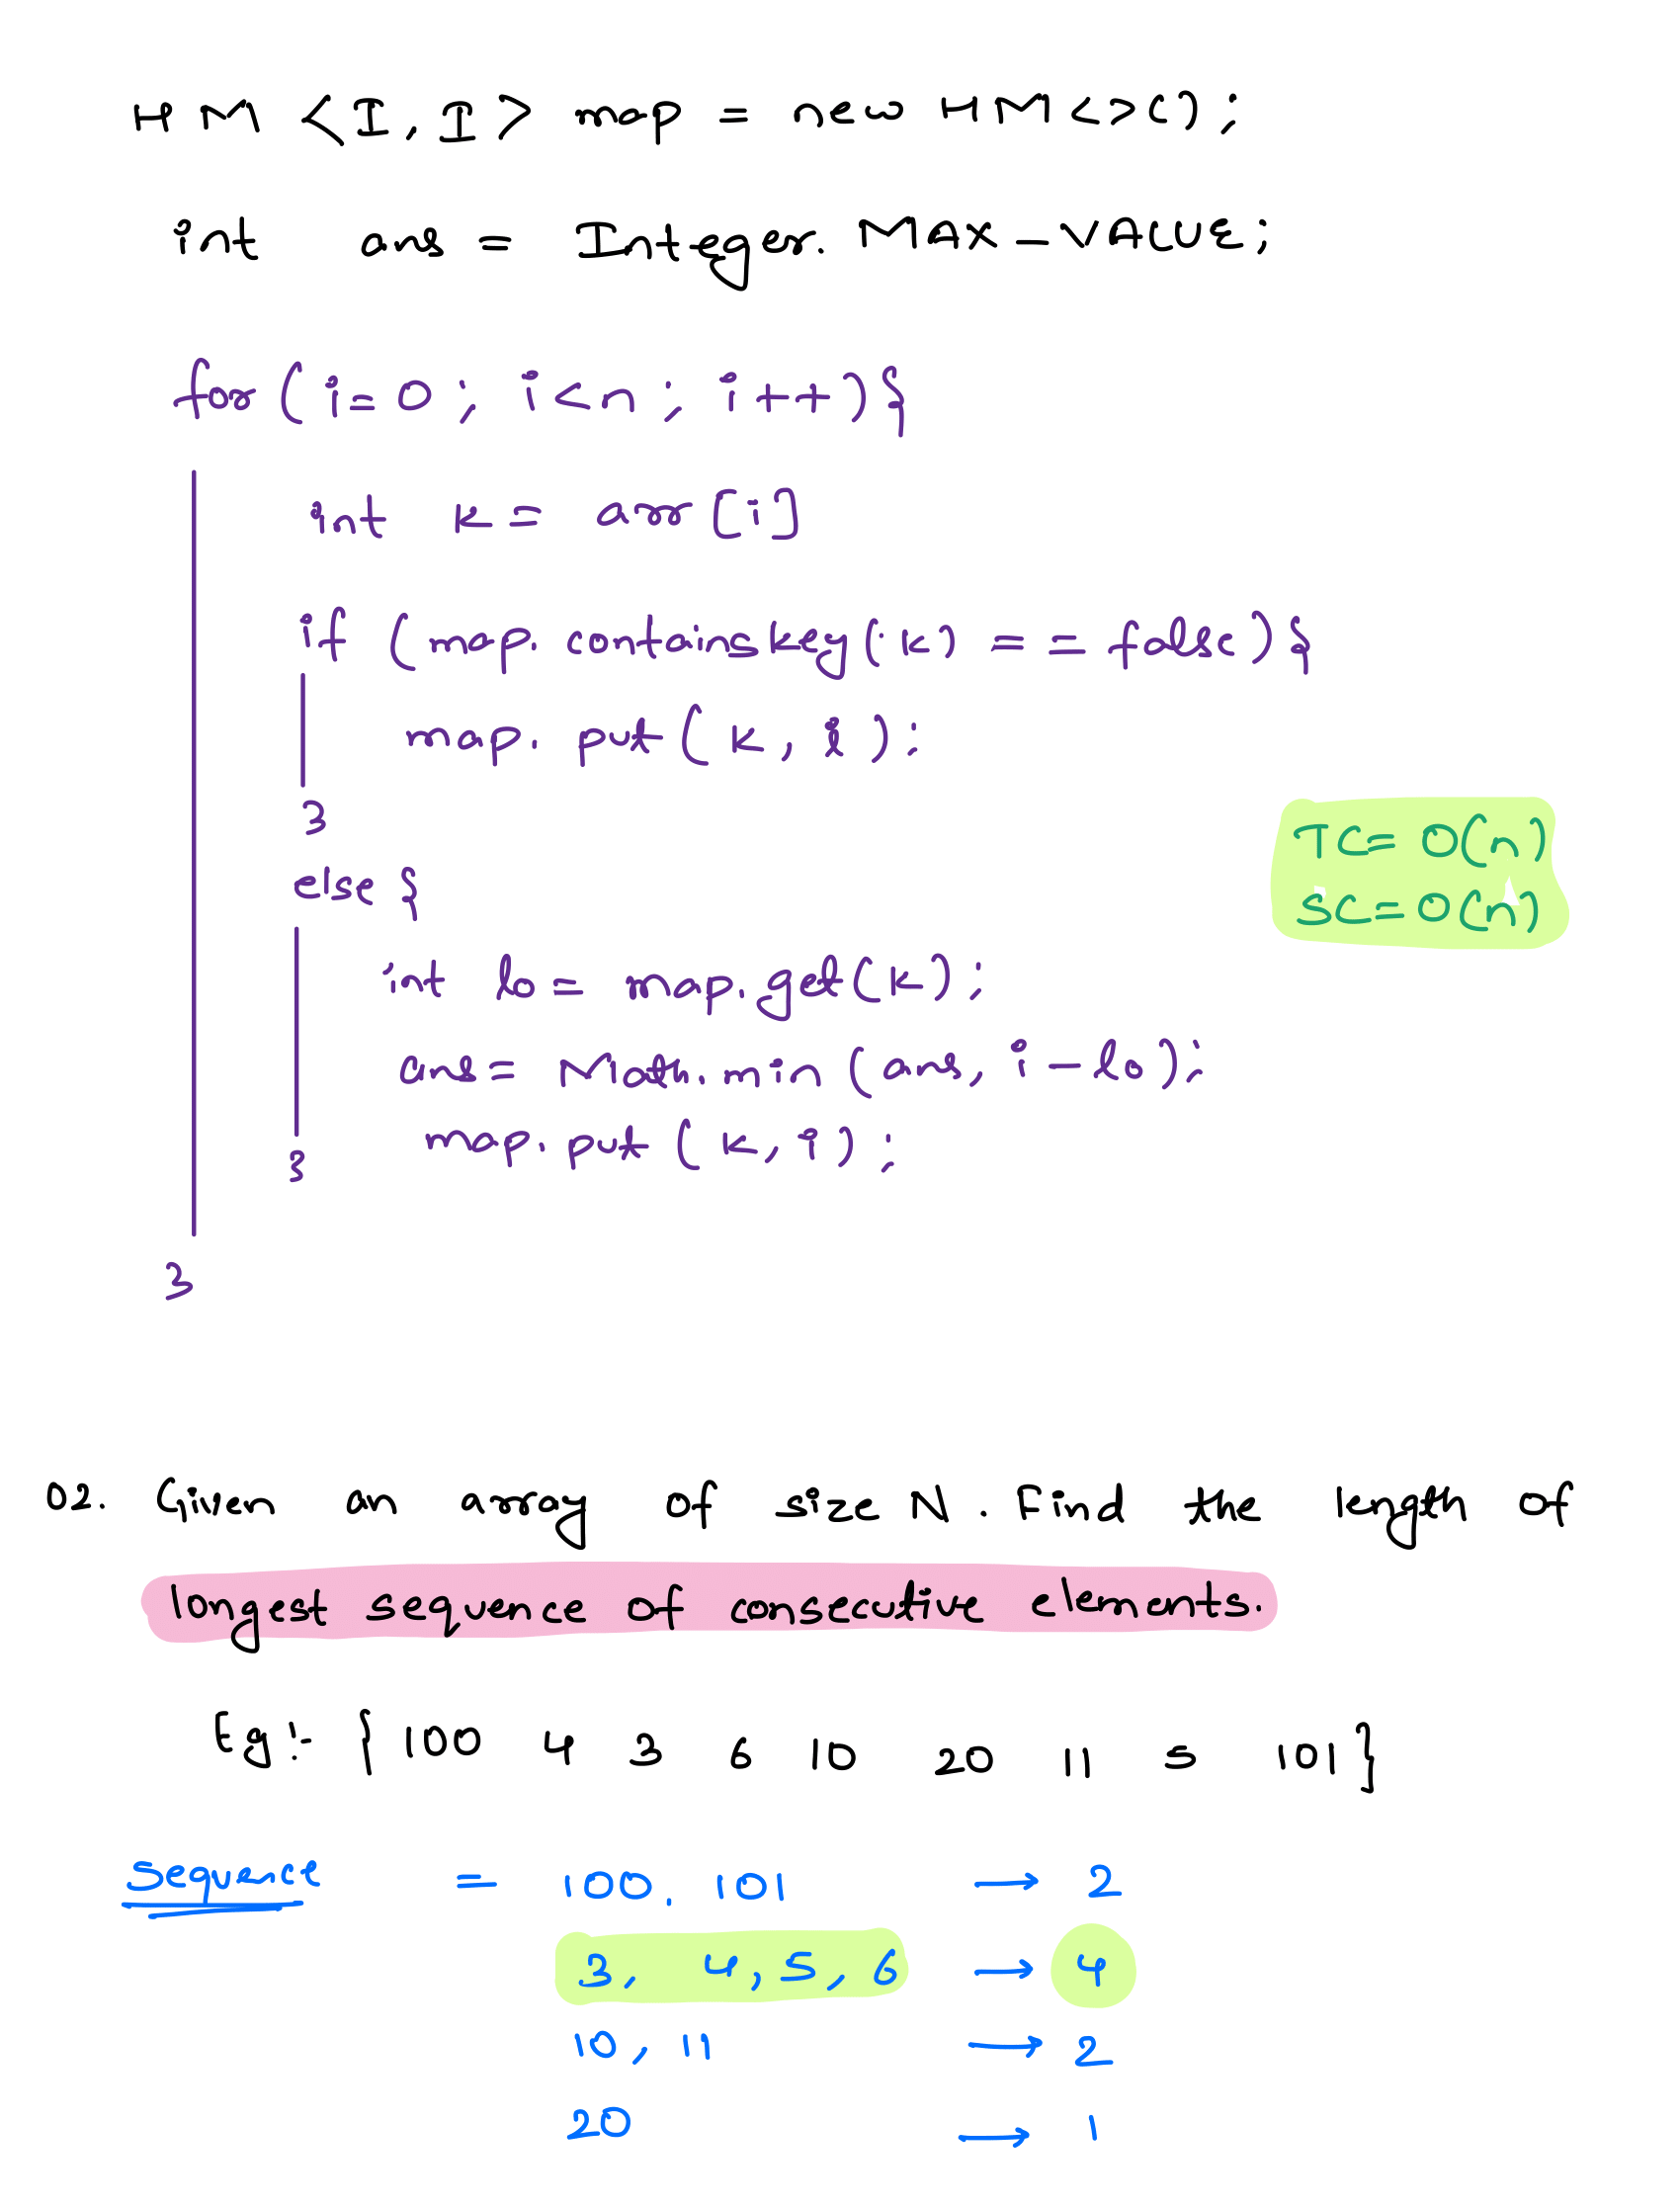 HM <I, I> map = new HM<>();
int ans = Integer.MAX_VALUE;
for( i=0 ; i<n ; i++ ){
int k = arr[i]
if (map.containskey(k) == false){
map.put(k, i);
}
else {
int lo = map.get(k);
ans = Math.min(ans, i-lo);
map.put(k, i);
}
}
TC= O(n)
SC= O(n)
02. Given an array of size N. Find the length of
longest sequence of consecutive elements.
Eg:- { 100 4 3 6 10 20 11 5 101 }
Sequence = 100, 101 → 2
3, 4, 5, 6 → 4
10, 11 → 2
20 → 1